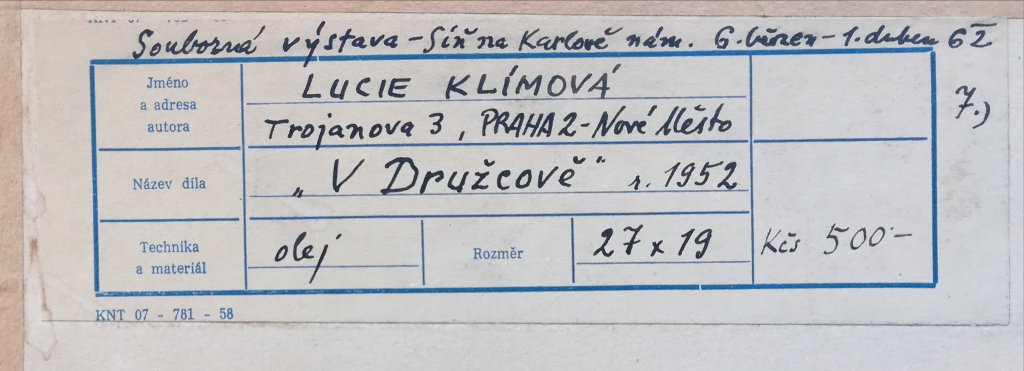 KNT 07 - 781 - 58
Souborná výstava - Síň na Karlově nám. 6. březen - 1. duben 62
7.)
Jméno a adresa autora
LUCIE KLÍMOVÁ
Trojanova 3, PRAHA 2 - Nové Město
Název díla
„V Družcově" r. 1952
Technika a materiál
olej
Rozměr
27 x 19
Kčs 500-
KNT 07 - 781 - 58